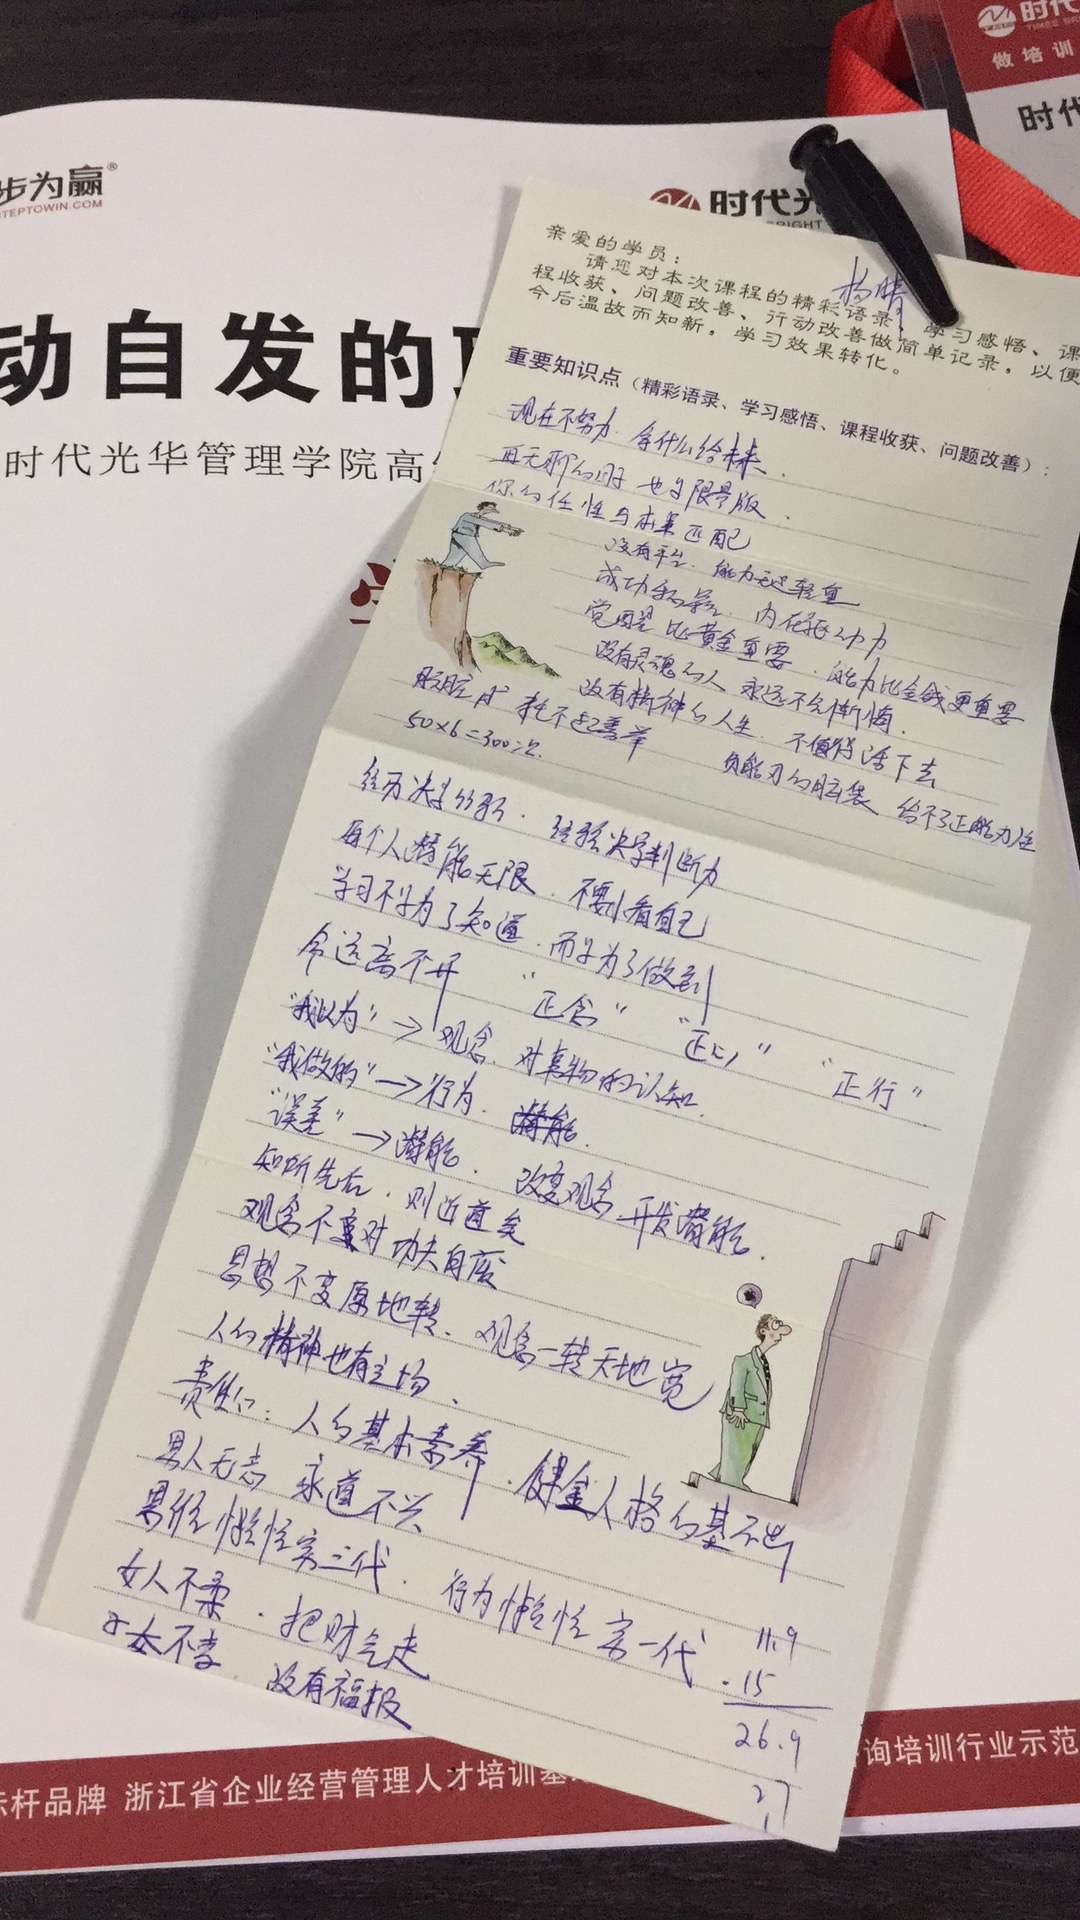 步为赢®
STEPTOWIN.COM
时代光
BRIGHT
时代
TIMES BR
做培训
时代
动自发的
时代光华管理学院高
亲爱的学员：
杨晴
请您对本次课程的精彩语录、学习感悟、课
程收获、问题改善、行动改善做简单记录，以便
今后温故而知新，学习效果转化。
重要知识点（精彩语录、学习感悟、课程收获、问题改善）：
现在不努力 拿什么给未来.
再无聊的日子 也是限量版.
你的任性与本事匹配
没有平台. 能力无足轻重
成功 内在驱动力
觉醒比黄金重要. 能力比金钱更重要
没有灵魂的人 永远不会忏悔.
没有精神的人生. 不值得活下去
肮脏 托不起善举
负能力的脑袋 给不了正能力
50×6=300次.
经历决定 . 经验决定判断力
每个人潜能无限. 不要小看自己
学习不是为了知道. 而是为了做到
命运离不开 “正念” “正心” “正行”
“我以为”→观念. 对事物的认知.
“我做的”→行为. 潜能.
“误差”→潜能. 改变观念 开发潜能.
知所先后. 则近道矣
观念不变对 功夫自废
思想不变原地转. 观念一转天地宽
人的精神也有立场.
责任心: 人的基本素养. 健全人格的基
男人无志 家道不兴
男 惰性害三代. 行为惰性害一代
女人不柔. 把财气走
子女不孝. 没有福报
11.9
.15
26.9
27
标杆品牌 浙江省企业经营管理人才培训基
询培训行业示范